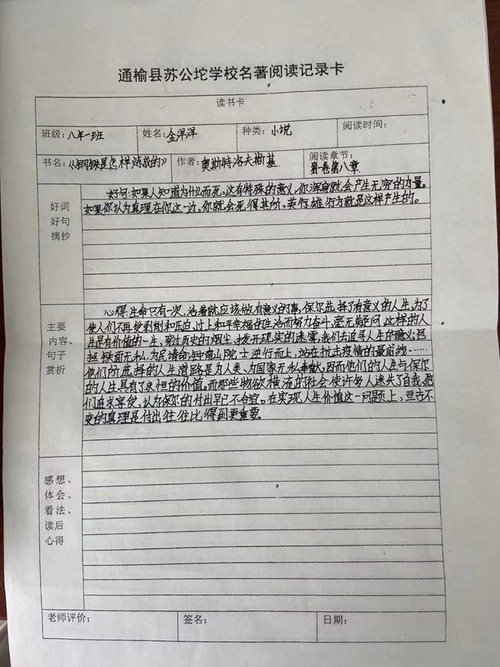 通榆县苏公坨学校名著阅读记录卡
读书卡
班级:八年一班 姓名:金洋洋 种类:小说 阅读时间:
书名:《钢铁是怎样炼成的》 作者:奥斯特洛夫斯基 阅读章节:第一卷第八章
好词
好句
摘抄
好句:如果人知道为什么而死,这有特殊的意义,你浑身就会产生无穷的力量。
如果你认为真理在你这一边,你就会死得其所,英雄行为就是这样产生的。
主要
内容、
句子
赏析
心得:生命只有一次,活着就应该做有意义的事,保尔选择了有意义的人生,为了
使人们不再受剥削和压迫,过上和平幸福的生活而努力奋斗,毫无疑问,这样的人
生是有价值的一生,
历史的烟尘,拨开现实的迷雾,我们去追寻人生的意义,
铁面无私,为民请命,钟南山院士逆行而上,站在抗击疫情的最前线……
他们所选择的人生道路是为人类、为国家无私奉献,因而他们的人生与保尔
的人生具有了永恒的价值,而那些物欲横流的社会使许多人迷失了自我,他
们追求享受,认为保尔的付出早已不合宜。在实现人生价值这一问题上,亘古不
变的真理是付出往往比得到更重要。
感想、
体会、
看法、
读后
心得
老师评价: 签名: 日期: